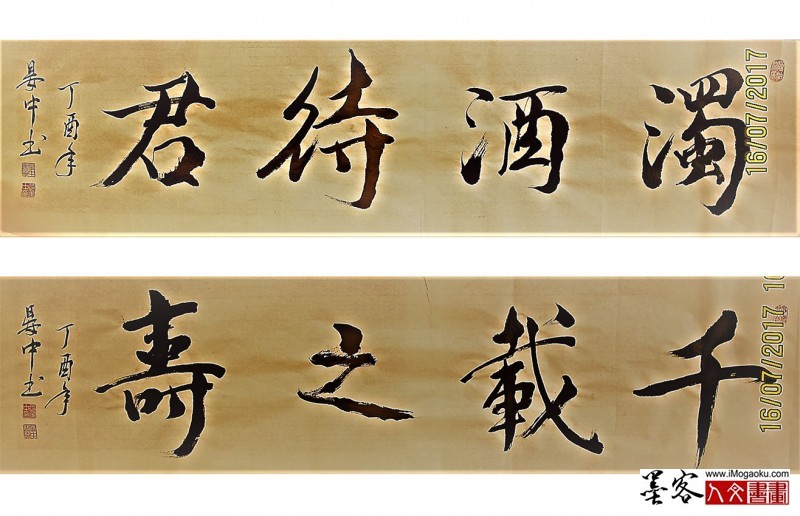 濁酒待君
丁酉年
晏中书
16/07/2017
千載之壽
丁酉年
晏中书
16/07/2017 1
www.iMogaoku.com
墨客人文書畫